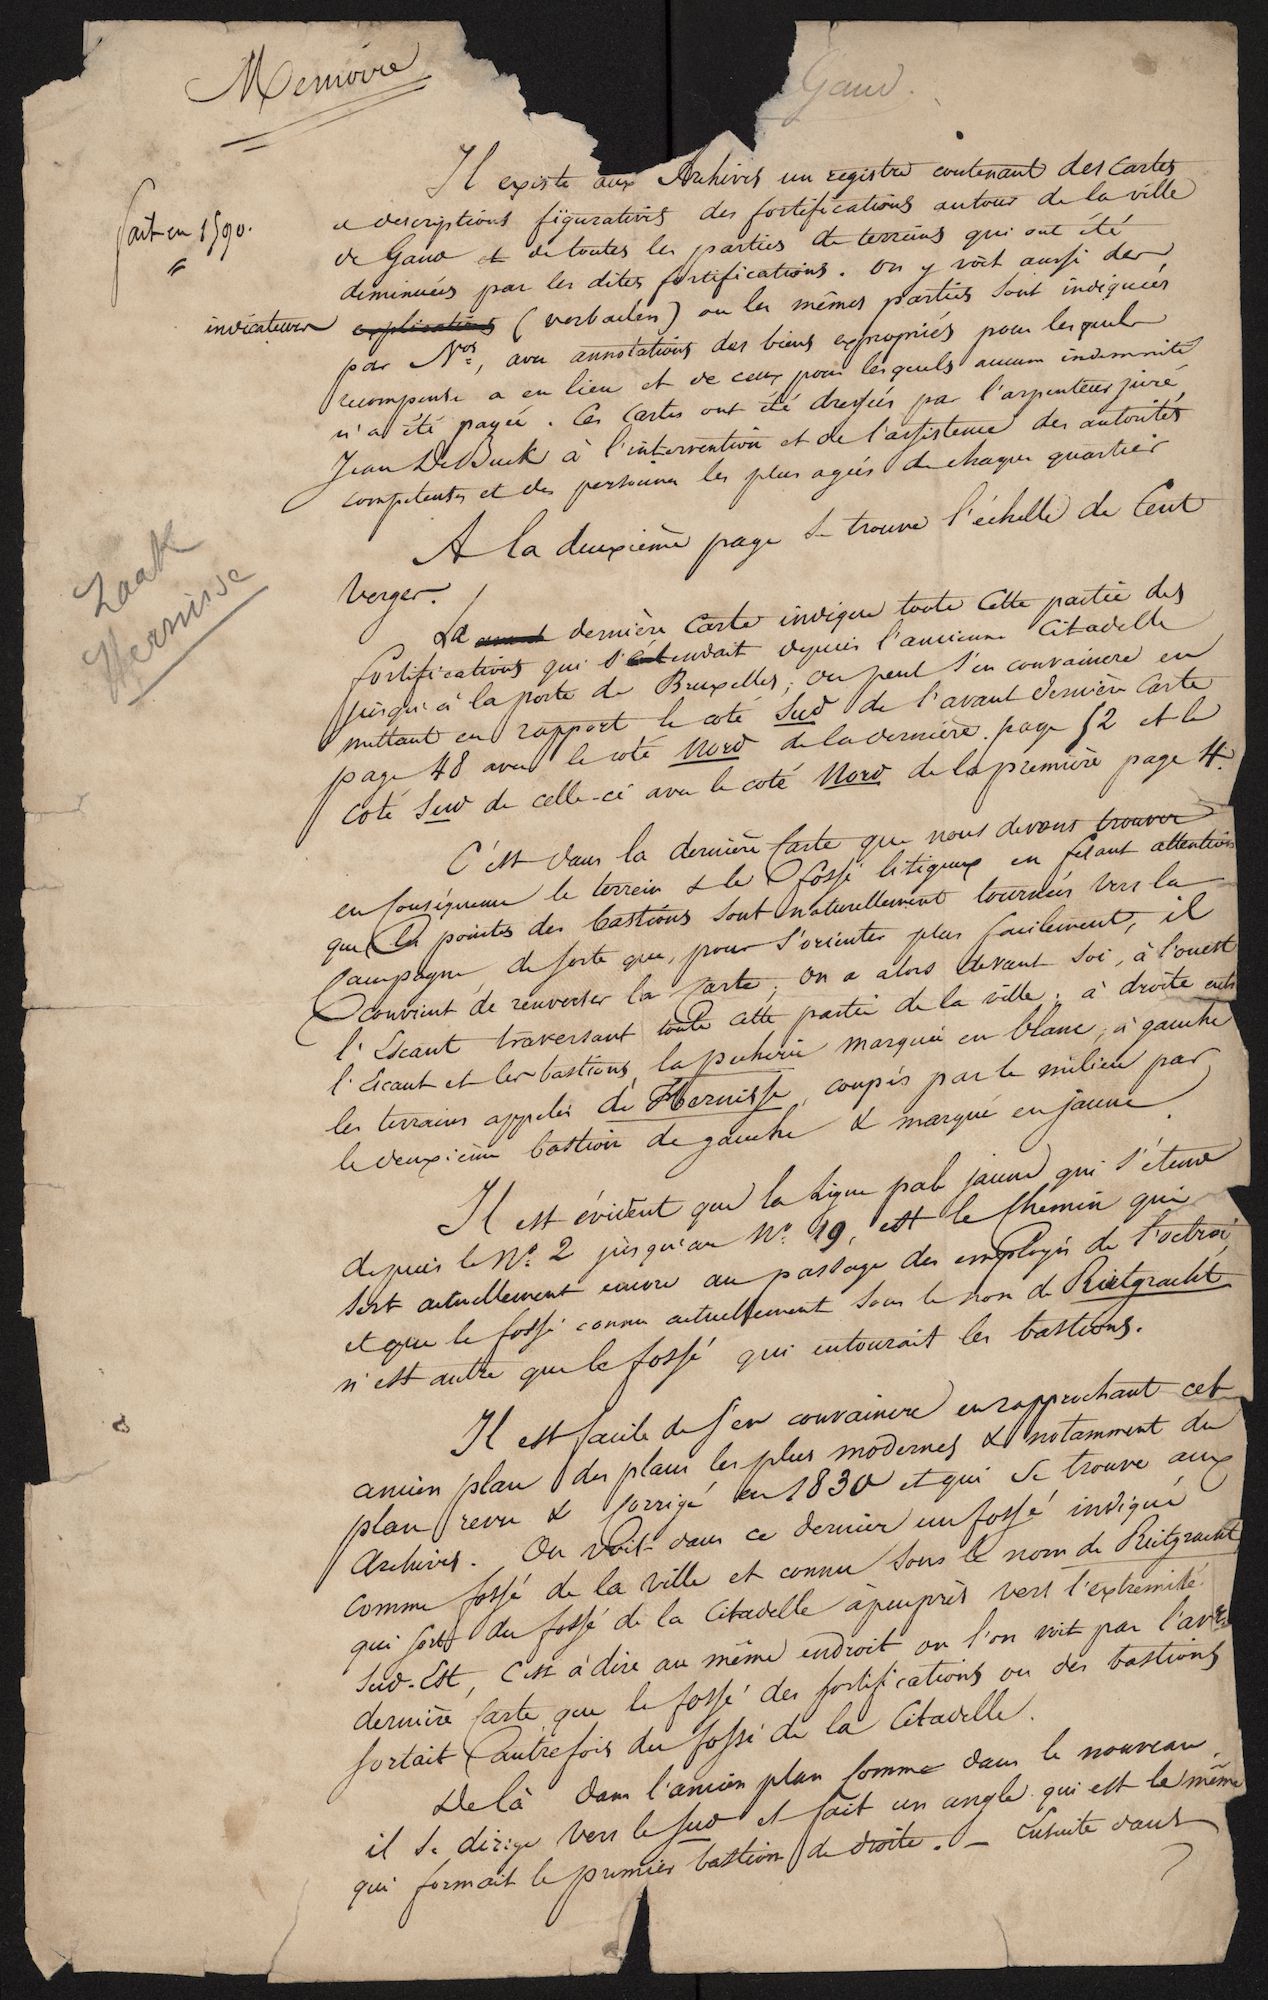 Memoire
Gand.
Il existe aux Archives un registre contenant des cartes
fait en 1590.
et descriptions figuratives des fortifications autour de la ville
de Gand et de toutes les parties de terreins qui ont été
diminuées par les dites fortifications. On y voit aussi des
indicateurs explications (verbaelen) ou les mêmes parties sont indiquées
par Nos, avec annotations des biens expropriés pour lesquels
recompense a eu lieu et de ceux pour lesquels aucune indemnité
n'a été payée. Ces cartes ont été dressées par l'arpenteur juré
Jean De Buck à l'intervention et de l'assistence des autorités
competentes et des personnes les plus agées de chaque quartier
A la deuxième page se trouve l'échelle de Cent
Verges.
Zaak
Hernisse
La dernière Carte indique toute cette partie des
fortifications qui s'étendait depuis l'ancienne Citadelle
jusqu'à la porte de Bruxelles; on peut s'en convaincre en
mettant en rapport le coté Sud de l'avant dernière Carte
page 48 avec le coté Nord de la dernière page 52 et le
coté Sud de celle-ci avec le coté Nord de la première page 4.
C'est dans la dernière Carte que nous devons trouver
en conséquence le terrein & le fossé litigieux en fesant attention
que les pointes des bastions sont naturellement tournées vers la
Campagne, de sorte que, pour s'orienter plus facilement, il
convient de renverser la Carte; on a alors devant soi, à l'ouest
l'Escaut traversant toute cette partie de la ville; à droite entre
l'Escaut et les bastions la pecherie marquée en blanc, à gauche
les terrains appelés de Hernisse, coupés par le milieu par
le deuxième bastion de gauche & marqué en jaune.
Il est évident que la ligne pale jaune qui s'étend
depuis le No. 2 jusqu'au No. 19, est le Chemin qui
sert actuellement encore au passage des employés de l'octroi
et que le fossé connu actuellement sous le nom de Rietgracht
n'est autre que le fossé qui entourait les bastions.
Il est facile de s'en convaincre en rapprochant cet
ancien plan des plans les plus modernes & notamment du
plan revu & corrigé en 1830 et qui se trouve aux
Archives. On voit dans ce dernier un fossé indiqué
comme fossé de la ville et connu sous le nom de Rietgracht
qui sort du fossé de la Citadelle àpeuprès vers l'extremité
Sud-Est, C'est à dire au même endroit ou l'on voit par l'avt
dernière Carte que le fossé des fortifications ou des bastions
sortait autrefois du fossé de la Citadelle.
De là dans l'ancien plan comme dans le nouveau
il se dirige vers le sud et fait un angle qui est le même
qui formait le premier bastion de droite. — Ensuite dans